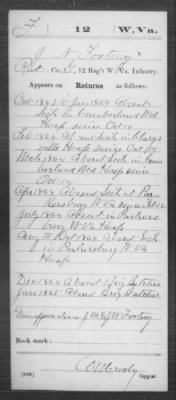 F 12 W. Va.
J. N. Fortney
Co. 12 Reg't W. Va. Infantry.
Appears on Returns as follows:
Oct 1863 to Jan 1864 Absent
sick in Cumberland Md.
Hosp. since Oct 17
Feb 1864 Absent sick in
Hosp since Oct 17
Mch 1864 Absent sick in Cum
berland Md Hosp since
Oct 17
Apr 1864 Absent sick at Par
kersburg W Va since
July 1864 Absent in Parkers
burg W Va Hosp
Aug to Oct 1864 Absent sick
in Parkersburg W Va
Hosp
Dec 1864 Absent Brig Butcher
Jan 1865 Absent Brig Butcher
J. W. Fortney
Book mark:
(546) Copyist.